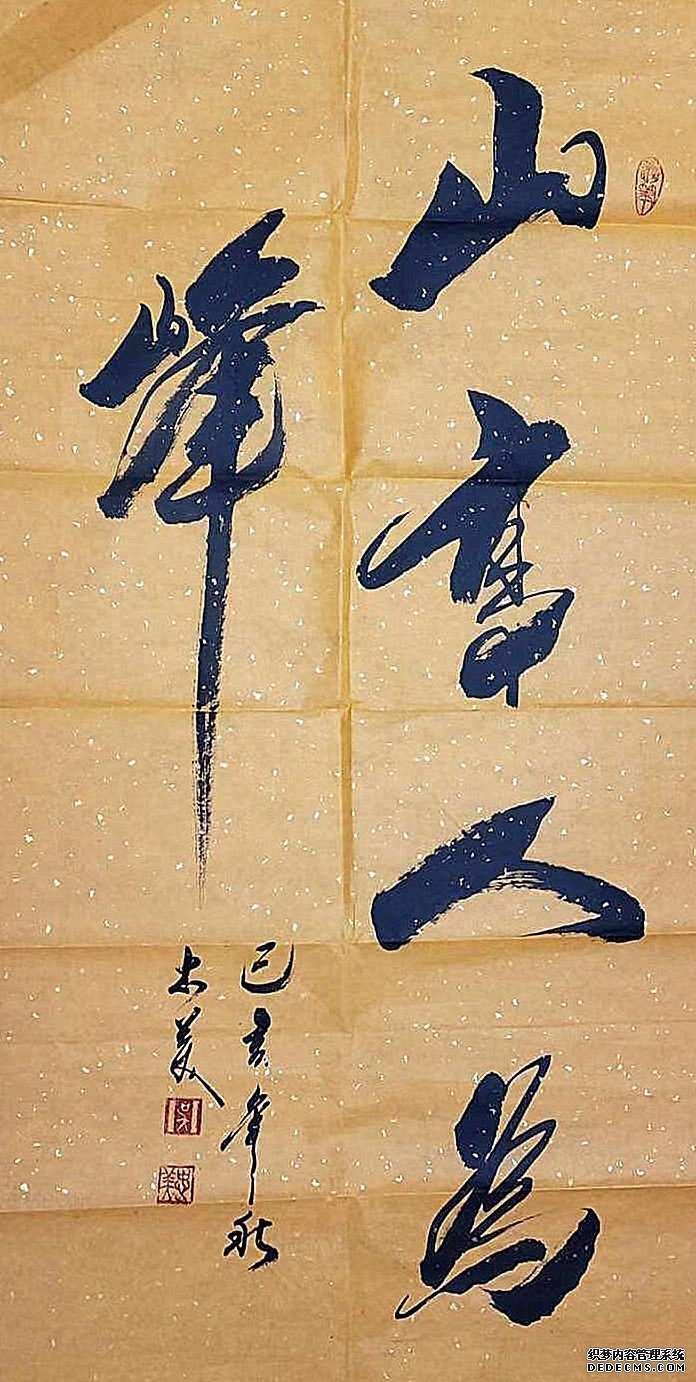 山高人為
峰
己亥年秋
忠美
吴
忠美
织梦内容管理系统
DEDECMS.COM